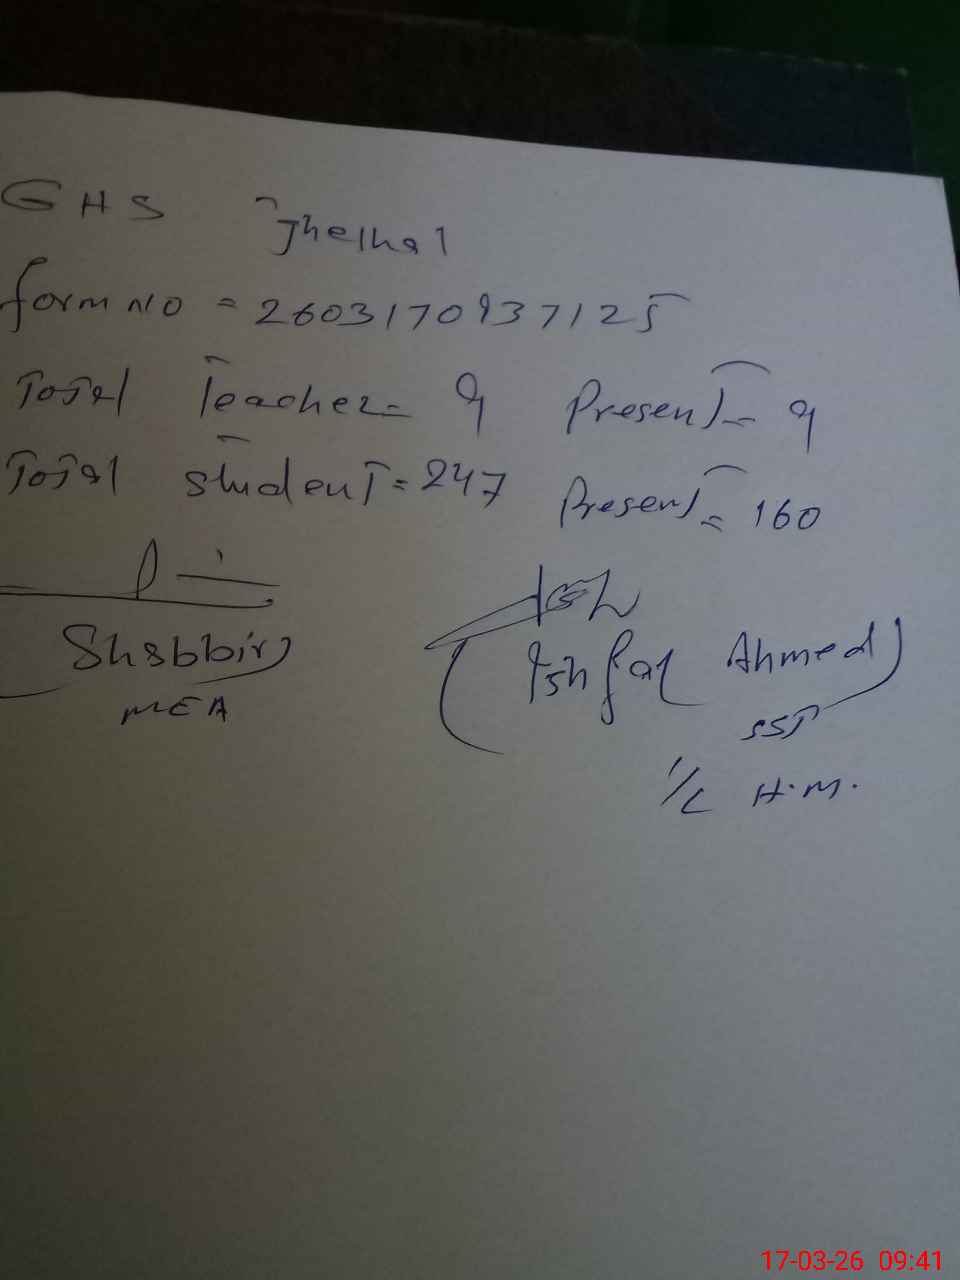 GHS Jhelhal
form no = 2603170937125
Total Teacher = 9 Present = 9
Total student = 247 Present = 160
Shabbir
MEA
(Ishfaq Ahmed)
SST
I/C H.M.
17-03-26 09:41